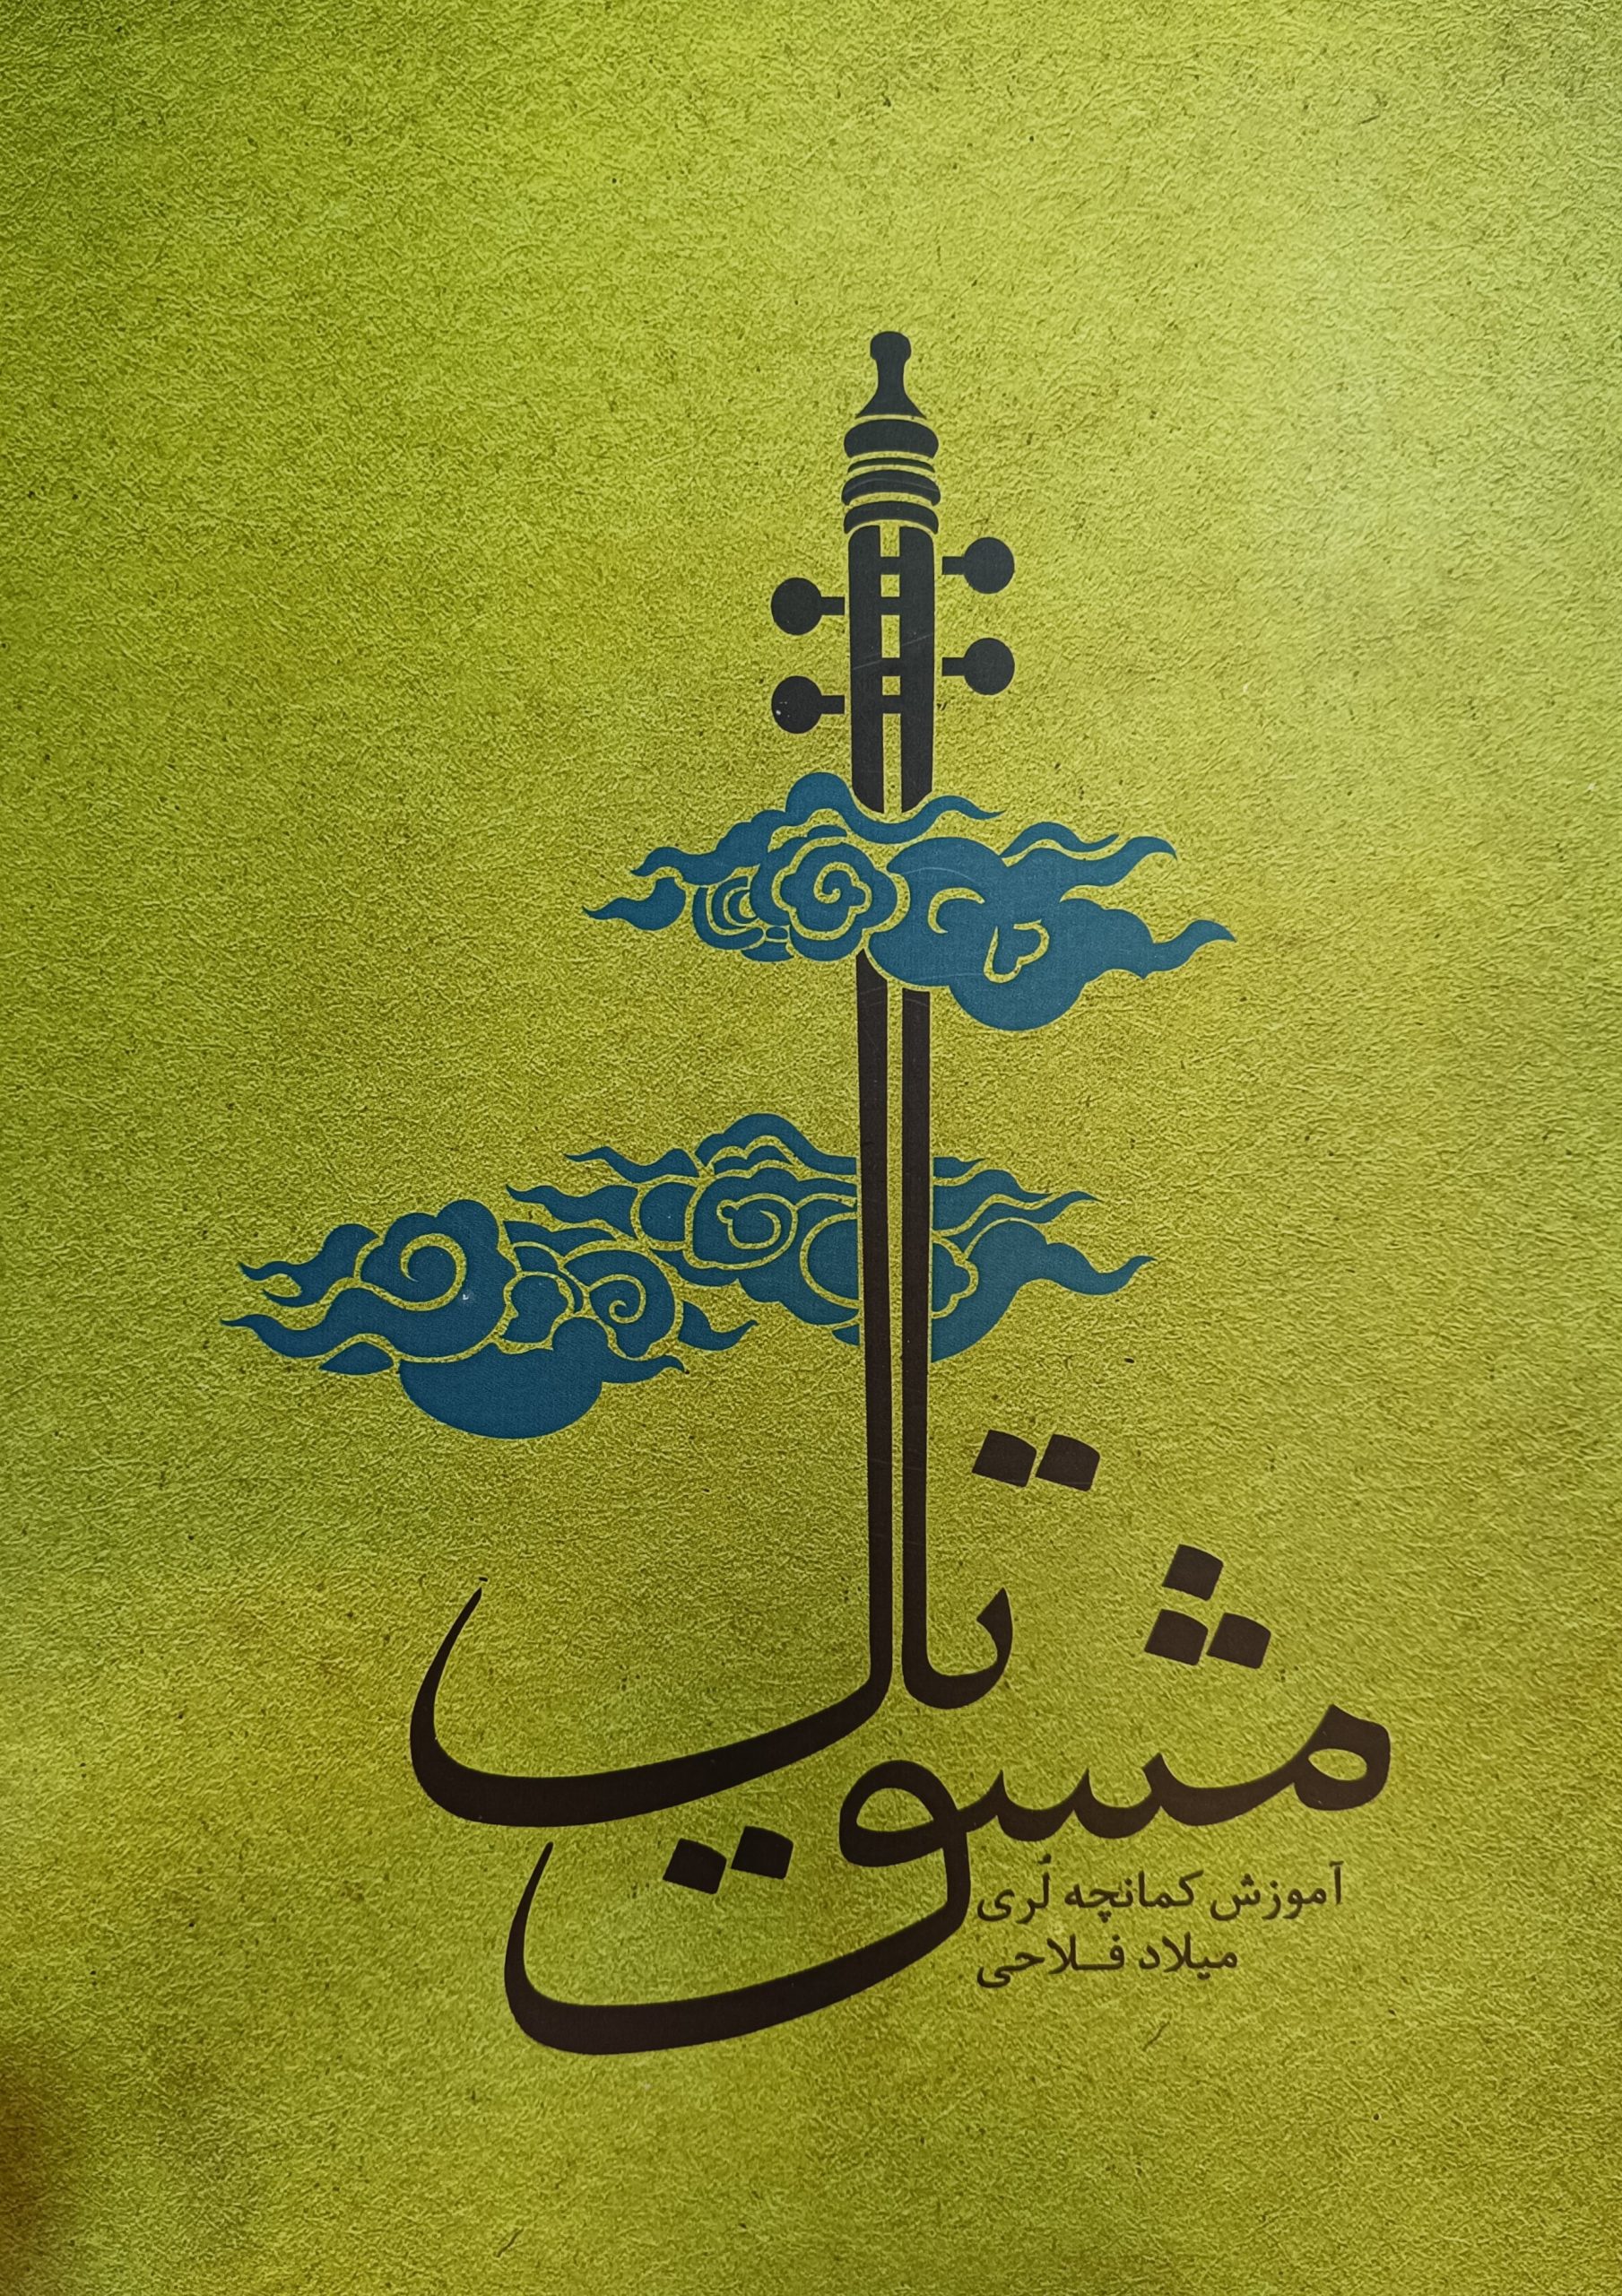 مشق تال
آموزش کمانچه لُری
میلاد فـلاحی